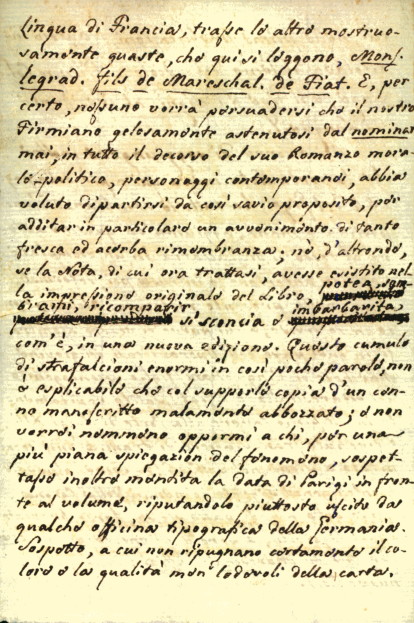 lingua di Francia, trasse le altre mostruo-
samente guaste, che qui si leggono, Mons.
legrad. fils de Mareschal. de Fiat. E, per
certo, nessuno vorrà persuadersi che il nostro
Firmiano gelosamente astenutosi dal nominar
mai, in tutto il decorso del suo Romanzo mora-
le-politico, personaggi contemporanei, abbia
voluto dipartirsi da così savio proposito, per
additar in particolare un avvenimento di tanto
fresca ed acerba rimembranza; nè, d'altronde,
se la Nota, di cui ora trattasi, avesse esistito nel-
la impressione originale del Libro, potea, sem-
brami, ricomparir si sconcia e imbarbarita,
com'è, in una nuova edizione. Questo cumulo
di strafalcioni enormi in così poche parole, non
è esplicabile che col supporlo copia d'un cen-
no manoscritto malamente abbozzato; e non
vorrei nemmeno oppormi a chi, per una
più piana spiegazion del fenomeno, sospet-
tasse inoltre mendita la data di Parigi in fron-
te al volume, riputandolo piuttosto uscito da
qualche officina tipografica della Germania.
Sospetto, a cui non ripugnano certamente il co-
lore e la qualità men lodevoli della carta.